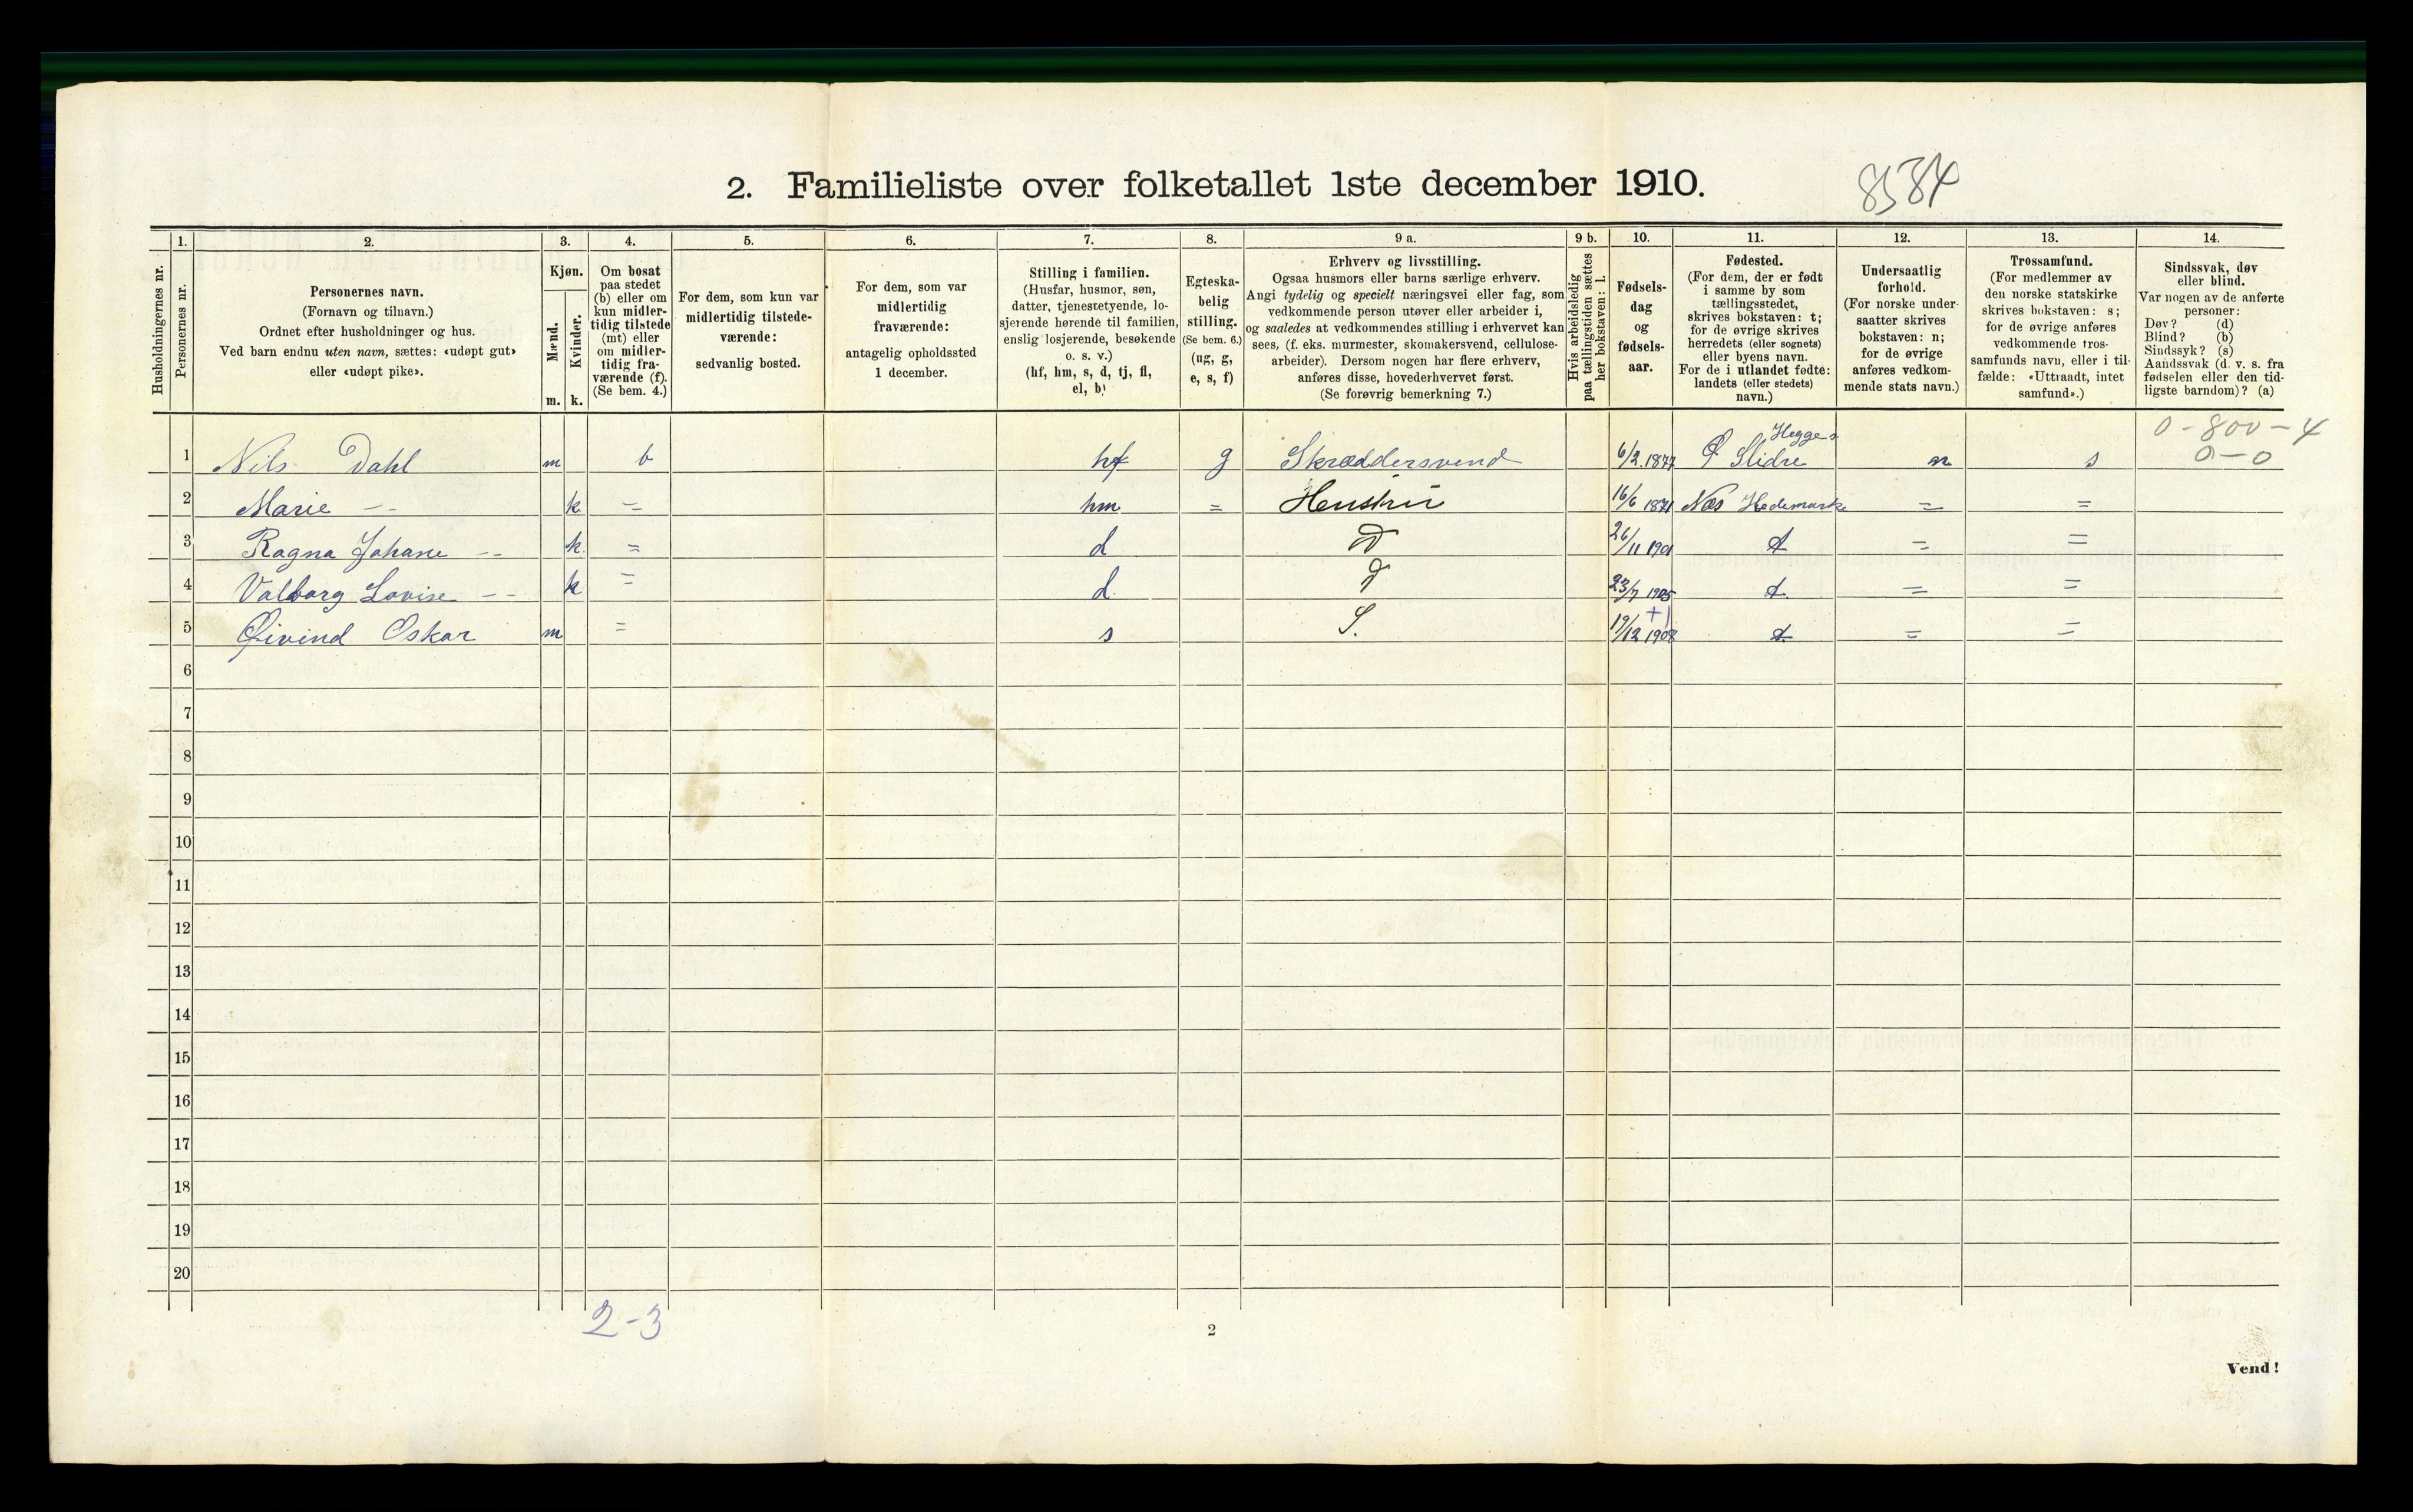 2. Familieliste over folketallet 1ste december 1910.
8584
Husholdningernes nr.
1.
Personernes nr.
2.
Personernes navn.
(Fornavn og tilnavn.)
Ordnet efter husholdninger og hus.
Ved barn endnu uten navn, sættes: «udøpt gut»
eller «udøpt pike».
3.
Kjøn.
Mænd.
Kvinder.
m. k.
4.
Om bosat
paa stedet
(b) eller om
kun midler-
tidig tilstede
(mt) eller
om midler-
tidig fra-
værende (f).
(Se bem. 4.)
5.
For dem, som kun var
midlertidig tilstede-
værende:
sedvanlig bosted.
6.
For dem, som var
midlertidig
fraværende:
antagelig opholdssted
1 december.
7.
Stilling i familien.
(Husfar, husmor, søn,
datter, tjenestetyende, lo-
sjerende hørende til familien,
enslig losjerende, besøkende
o. s. v.)
(hf, hm, s, d, tj, fl,
el, b)
8.
Egteska-
belig
stilling.
(Se bem. 6.)
(ug, g,
e, s, f)
9 a.
Erhverv og livsstilling.
Ogsaa husmors eller barns særlige erhverv.
Angi tydelig og specielt næringsvei eller fag, som
vedkommende person utøver eller arbeider i,
og saaledes at vedkommendes stilling i erhvervet kan
sees, (f. eks. murmester, skomakersvend, cellulose-
arbeider). Dersom nogen har flere erhverv,
anføres disse, hovederhvervet først.
(Se forøvrig bemerkning 7.)
9 b.
Hvis arbeidsledig
paa tællingstiden sættes
her bokstaven: l.
10.
Fødsels-
dag
og
fødsels-
aar.
11.
Fødested.
(For dem, der er født
i samme by som
tællingsstedet,
skrives bokstaven: t;
for de øvrige skrives
herredets (eller sognets)
eller byens navn.
For de i utlandet fødte:
landets (eller stedets)
navn.)
12.
Undersaatlig
forhold.
(For norske under-
saatter skrives
bokstaven: n;
for de øvrige
anføres vedkom-
mende stats navn.)
13.
Trossamfund.
(For medlemmer av
den norske statskirke
skrives bokstaven: s;
for de øvrige anføres
vedkommende tros-
samfunds navn, eller i til-
fælde: «Uttraadt, intet
samfund».)
14.
Sindssvak, døv
eller blind.
Var nogen av de anførte
personer:
Døv? (d)
Blind? (b)
Sindssyk? (s)
Aandssvak (d. v. s. fra
fødselen eller den tid-
ligste barndom)? (a)
0-800-4
0-0
1 Nils Dahl m b hf g Skræddersvend 6/2.1877 Ø Slidre n s
2 Marie -- k = hm = Henstrü 16/6 1871 Næs Hedemark = =
3 Ragna Johane -- k = d D 26/11 1901 t = =
4 Valborg Lovise -- k = d. D 23/7 1905 t. = =
5 Øivind Oskar m = s S. 19/12 1908 t = =
6
7
8
9
10
11
12
13
14
15
16
17
18
19
20
2-3
2
Vend!